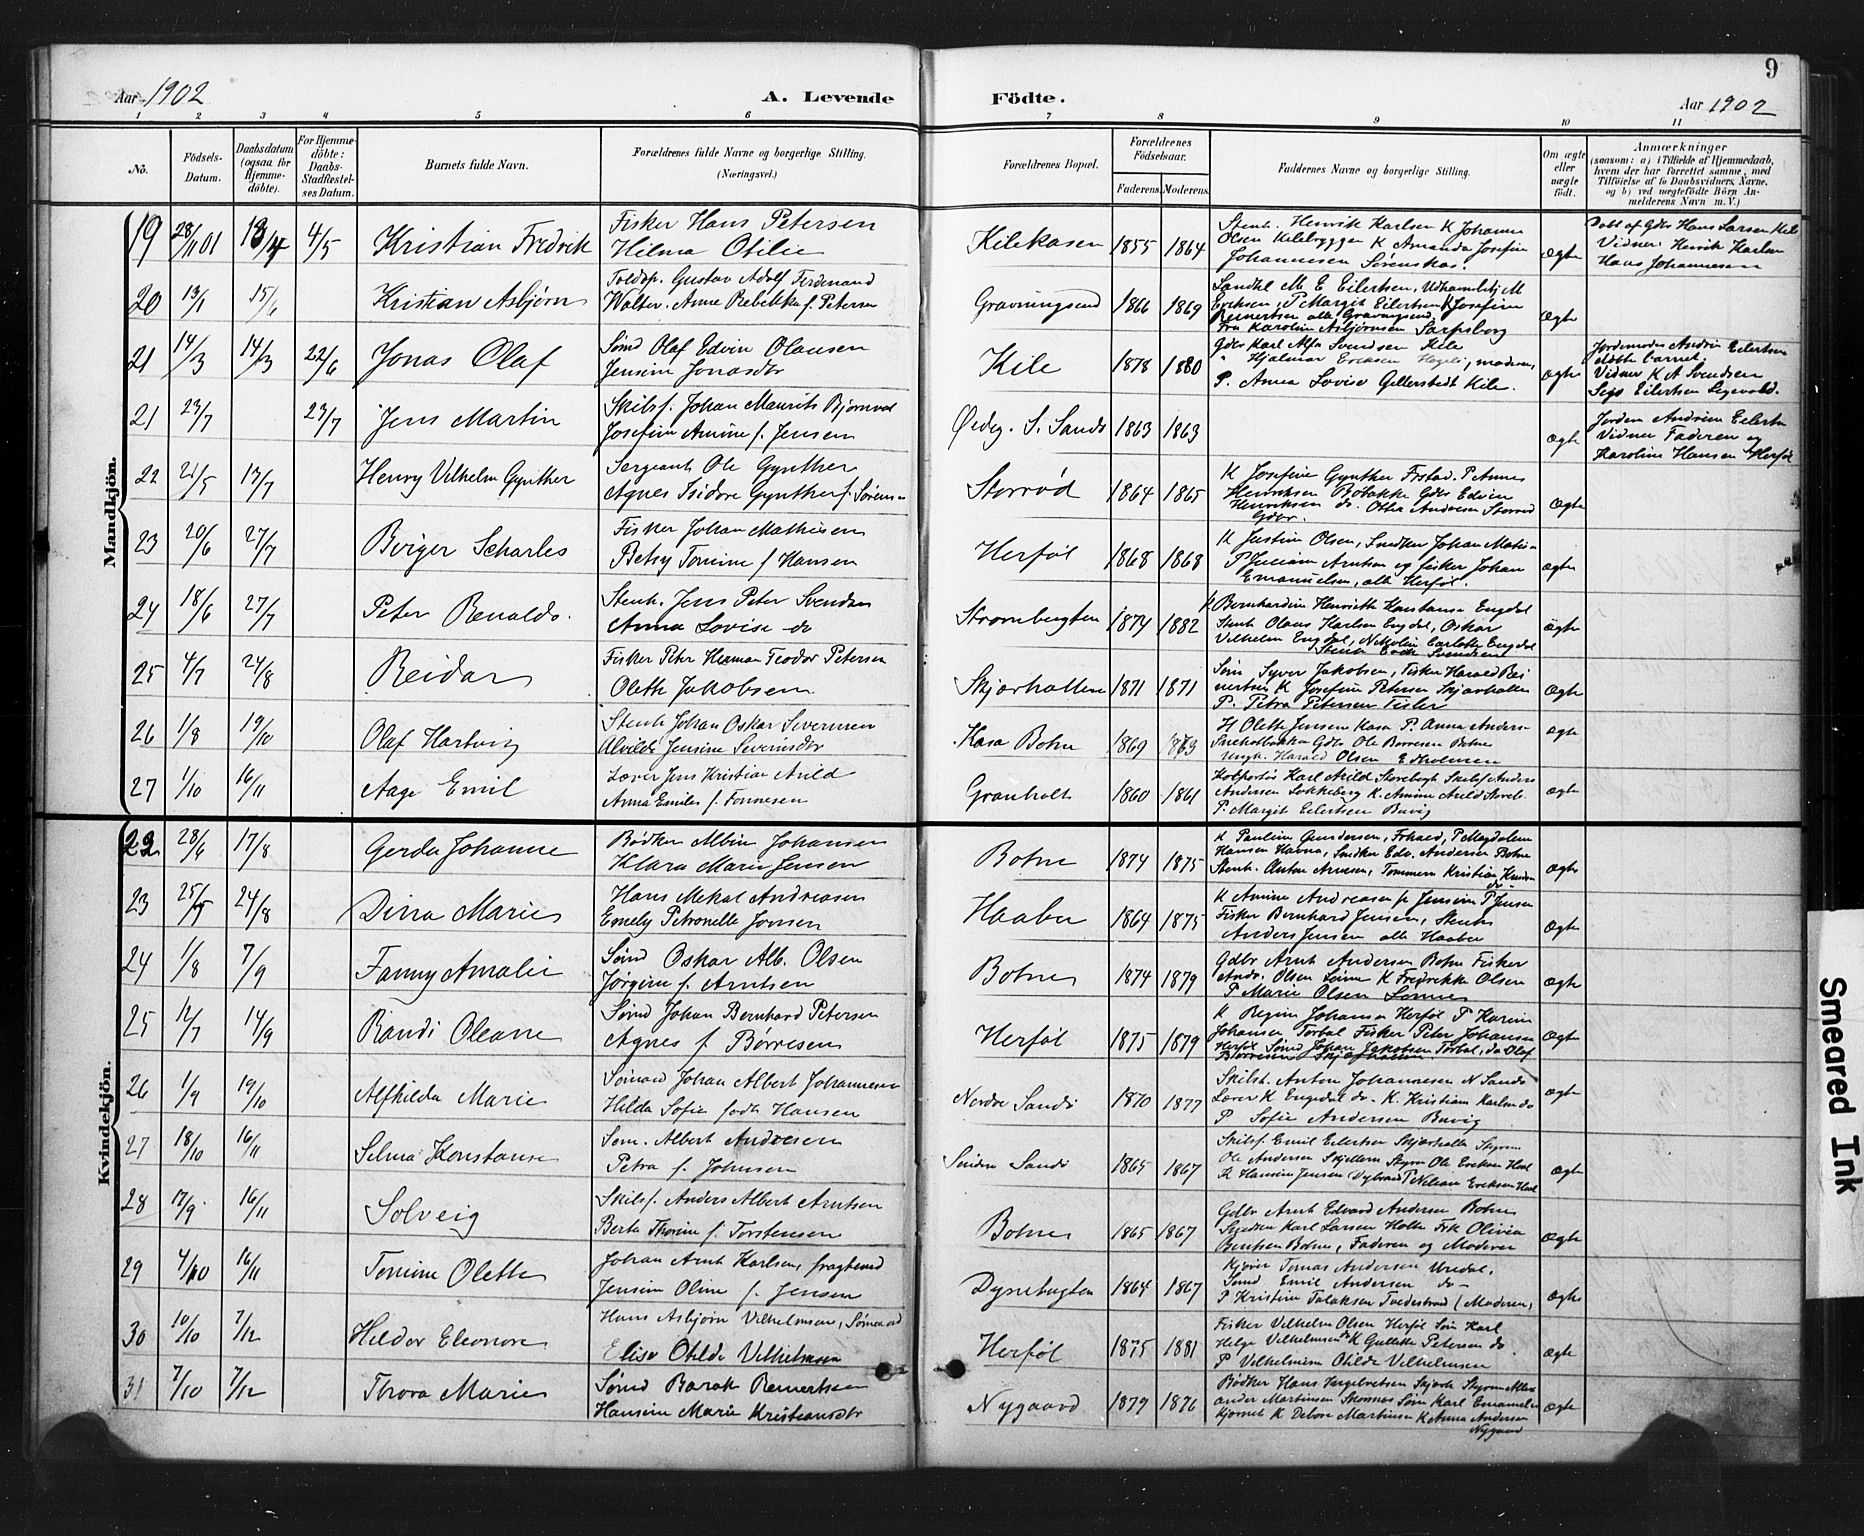 9
Aar 1902
A. Levende Födte.
Aar 1902
1 2 3 4 5 6 7 8 9 10 11
No.
Födsels-Datum.
Daabsdatum (ogsaa for Hjemme-döbte).
For Hjemme-döbte: Daabs-Stadfæstel-ses Datum.
Barnets fulde Navn.
Forældrenes fulde Navne og borgerlige Stilling.
(Næringsvei.)
Forældrenes Bopæl.
Forældrenes Födselsaar.
Faderens. Moderens.
Faddernes Navne og borgerlige Stilling.
Om ægte eller uægte födt.
Anmærkninger
(saasom: a) i Tilfælde af Hjemmedaab,
hvem der har forrettet samme, med
Tilföielse af to Daabsvidners Navne,
og b) ved uægtefödte Börn An-
melderens Navn m. V.)
Mandkjön.
19 28/11 01 13/4 4/5 Kristian Fredrik
Fisker Hans Petersen
Hilma Otilie
Kilekasen 1855 1864
Stenh. Henrik Karlsen K Johanne
Olsen Kilebyggen K Amanda Josefine
Johannesen Sørenskas.
ægte
Døbt af Gdbr Hans Larsen Kile
Vidner Henrik Karlsen
Hans Johannesen
20 13/1 15/6 Kristian Asbjørn
Toldop. Gustav Adolf Ferdinand
Walter. Anne Rebekka f. Petersen
Gravningsund 1866 1869
Eriksen, P Margit Eilertsen K Josefine
Reinertsen alle Gravningsund
Fru Karoline Asbjørnsen Sarpsborg
ægte
21 14/3 14/3 22/6 Jonas Olaf
Sømd Olaf Edvin Olausen
Jensine Jonasdtr
Kile 1878 1880
Gdbr Karl Alfr Svendsen Kile
" Hjalmar Eriksen, moderen,
P. Anna Lovise Gellerstedt Kile.
ægte
Jordemoder Andrine Eilertsen
døbte barnet.
Vidner K A Svendsen
21 23/7 23/7 Jens Martin
Skibsf. Johan Maurits Bjørnvol
Josefine Amine f. Jensen
Ødeg. S. Sandø 1863 1863
ægte
Jordem Andrine Eilertsen
Vidner Faderen og
Karoline Hansen Herføl
22 21/5 13/7 Henry Vilhelm Gynther
Sergeant Ole Gynther
Agnes Isidore Gynther f. Sørensen
Storrød 1864 1865
K Josefine Gynther Frstad. P Annes
Henriksen Bøbakke Gdbr Edvin
Henriksen do. Otto Andersen Storrød
Gdbr.
ægte
23 20/6 27/7 Birger Scharles
Fisker Johan Mathisen
Betsy Tomine f Hansen
Herføl 1868 1868
K Justine Olsen, Snedker Johan Mathis
P Juliane Arntsen og fisker Johan
Emanuelsen, alle Herføl.
ægte
24 18/6 27/7 Peter Renaldo.
Stenh. Jens Peter Svendsen
Anna Lovise do
Strømbugten 1874 1882
K Bernhardine Henriette Konstanse Engdal
Stenh Olaus Karlsen Engdal, Oskar
Vilhelm Engdal, Nikoline Carlotte Engdal
ægte
25 4/7 24/8 Reidar
Fisker Peter Herman Teodor Petersen
Olette Jakobsen
Skjærhallen 1871 1871
Søm Syver Jakobsen, Fisker Harald Rei
nertsen K Josefine Petersen Skjærhallen
P. Petra Petersen Fisker
ægte
26 1/8 19/10 Olaf Hartvig
Stenh Johan Oskar Severinsen
Alvilde Jensine Severinsdtr
Kasa Bohne 1869 1863
H Olette Jensen Kasa P. Anna Anders
Snekolbakken Gdbr Ole Børresen Bohne
Ungk. Harald Olsen Edholmen
ægte
27 1/10 16/11 Aage Emil
Lærer Jens Kristian Arild
Anna Emilie f. Fonnesen
Granholt 1860 1861
Kolportør Karl Arild Storebugt Skibsf Anders
Andersen Løkkeberg K. Amine Arild Storeb.
P. Margit Eilertsen Buvig
ægte
Kvindekjön.
22 28/6 17/8 Gerda Johanne
Bødker Albin Johansen
Klara Marie Jensen
Bohne 1874 1875
K Pauline Gundersen, Frhald, P Magdalene
Hansen Havna, Snedker Edv. Andersen Bohne
Stenh. Anton Arnesen, Tømmerm Kristian Knudsen
do
ægte
23 25/5 24/8 Dina Marie
Hans Mekal Andreasen
Emely Petronelle Jonsen
Haabu 1864 1875
K Amine Andreasen P Jensine P Jensen
Fisker Bernhard Jensen, Stenh
Anders Jensen alle Haabu
ægte
24 1/8 7/9 Fanny Amalie
Sømd Oskar Alb. Olsen
Jørgine f. Arntsen
Bohne 1874 1879
Gdbr Arnt Andersen Bohne Fisker
Ands. Olsen Sønne K Fredrikke Olsen
P Marie Olsen Sønne
ægte
25 12/7 14/9 Randi Oleane
Sømd Johan Bernhard Petersen
Agnes f. Børresen
Herføl 1875 1879
K Regine Johansen Herføl P Karine
Johansen Torbal Fisker Peter Johansen
Herføl Sømd Johan Jakobsen Torbal, do Olaf
Børresen Skjærhallen
ægte
26 1/9 19/10 Alfhilda Marie
Sømand Johan Albert Johannesen
Hilda Sofie født Hansen
Nordre Sandø 1870 1877
Skibst. Anton Johannesen N Sandø
Lærer K Engedal do. K. Kristiane Karlsen do
P Sofie Andersen Buvig
ægte
27 18/10 16/11 Selma Konstanse
Søm. Albert Andresen
Petra f. Johnsen
Søndre Sandø 1865 1867
Skibsf. Emil Eilertsen Skjærhallen Styrm
Ole Andersen Skjellern Styrm Ole Eriksen
K Hansine Jensen P Neliane Eriksen
ægte
28 17/9 16/11 Solveig
Skibsf. Anders Albert Arntsen
Berte Thorine f. Torstensen
Bohne 1865 1867
Gdbr Arnt Edvard Andersen Bohne
Snedker Karl Larsen Holte Frk Olivia
Berntsen Bohne, Faderen og Moderen
ægte
29 4/10 16/11 Tomine Olette
Johan Arnt Karlsen, fragtemd
Jensine Oline f. Jensen
Dynebugten 1864 1867
Kjøbm Tomas Andersen Urdal.
Sømd Emil Andersen do
P Kristine Talaksen Tvedestrand (Moderen)
ægte
30 10/10 7/12 Hildor Eleonore
Hans Asbjørn Vilhelmsen, Sømand
Elise Otilde Vilhelmsen
Herføl 1875 1881
Fisker Vilhelm Olsen Herføl Søm Karl
Helge Vilhelmsen do K Gullette Petersen do
P Vilhelmine Otilde Vilhelmsen
ægte
31 7/10 7/12 Thora Marie
Sømd Barak Reinertsen
Hansine Marie Kristiansdtr
Nygaard 1879 1876
Bødker Hans Ingebretsen Skjærh Styrm Alex
ander Martinsen Skomnes Søm Karl Emanuelsen
Kjørnet K Debora Martinsen K Anna Andersen
Nygaard
ægte
Smeared Ink